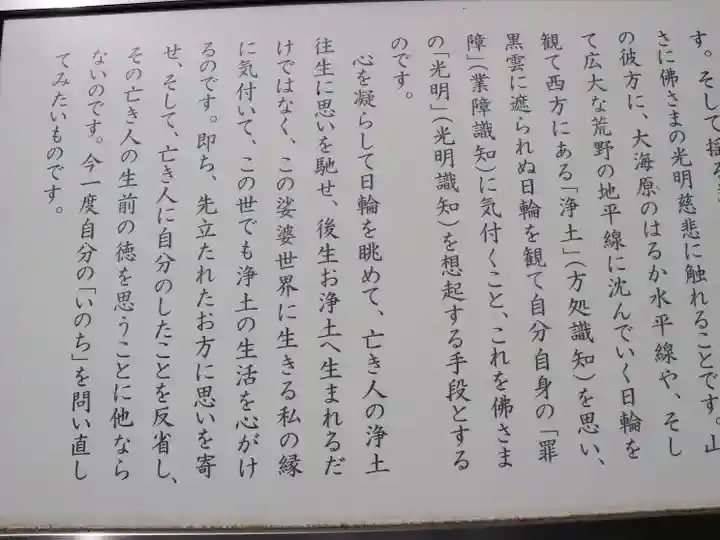 す。そして
さに佛さまの光明慈悲に触れることです。山
の彼方に、大海原のはるか水平線や、そし
て広大な荒野の地平線に沈んでいく日輪を
観て西方にある「浄土」(方処識知)を思い、
黒雲に遮られぬ日輪を観て自分自身の「罪
障」(業障識知)に気付くこと、これを佛さま
の「光明」(光明識知)を想起する手段とする
のです。
心を凝らして日輪を眺めて、亡き人の浄土
往生に思いを馳せ、後生お浄土へ生まれるだ
けではなく、この娑婆世界に生きる私の縁
に気付いて、この世でも浄土の生活を心がけ
るのです。即ち、先立たれたお方に思いを寄
せ、そして、亡き人に自分のしたことを反省し、
その亡き人の生前の徳を思うことに他なら
ないのです。今一度自分の「いのち」を問い直し
てみたいものです。